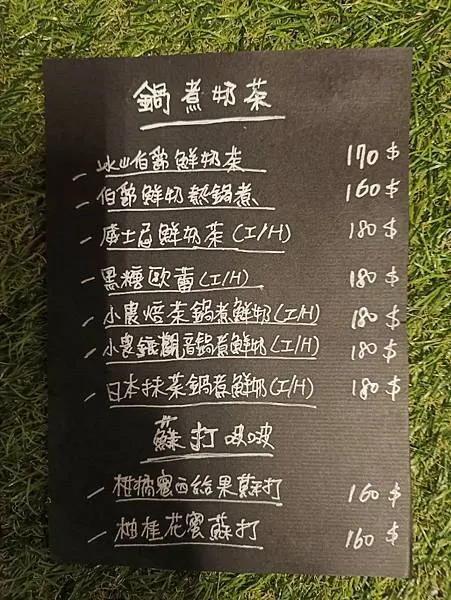 鍋煮奶茶
冰山伯爵鮮奶茶 170$
伯爵鮮奶熱鍋煮 160$
威士忌鮮奶茶(I/H) 180$
黑糖歐蕾(I/H) 180$
小農焙茶鍋煮鮮奶(I/H) 180$
小農鐵觀音鍋煮鮮奶(I/H) 180$
日本抹茶鍋煮鮮奶(I/H) 180$
蘇打啵啵
柑橘蜜西給果蘇打 160$
柚桂花蜜蘇打 160$